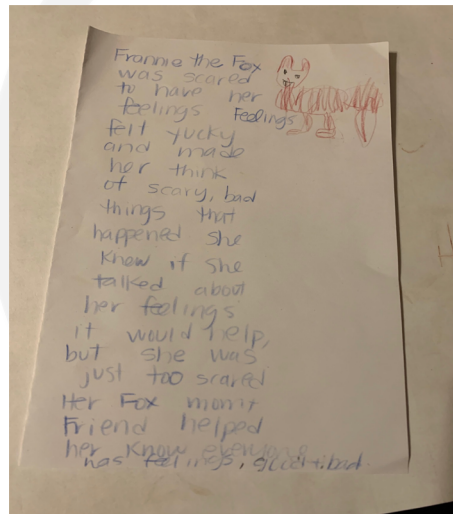 Frannie the Fox
was scared
to have her
feelings Feelings
felt yucky
and made
her think
of scary, bad
things that
happened She
knew if she
talked about
her feelings
it would help,
but she was
just too scared
Her Fox mom+
Friend helped
her know everyone
has feelings, good+bad.